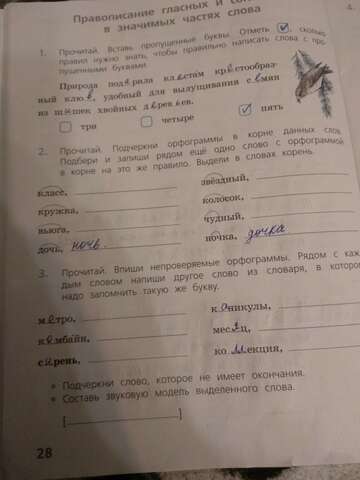 Правописание гласных и
в значимых частях слова
1. Прочитай. Вставь пропущенные буквы. Отметь ☑, сколько
правил нужно знать, чтобы правильно написать слова с про-
пущенными буквами.
Природа подарила клестам крестообраз-
ный клюв, удобный для вылущивания семян
из шишек хвойных деревьев.
три четыре ✓ пять
2. Прочитай. Подчеркни орфограммы в корне данных слов.
Подбери и запиши рядом ещё одно слово с орфограммой
в корне на это же правило. Выдели в словах корень.
класс, звёздный,
кружка, колосок,
вьюга, чудный,
дочь, ночь. ночка, дочка
3. Прочитай. Впиши непроверяемые орфограммы. Рядом с каж-
дым словом напиши другое слово из словаря, в котором
надо запомнить такую же букву.
метро, каникулы,
комбайн, месяц,
сирень, коллекция,
• Подчеркни слово, которое не имеет окончания.
• Составь звуковую модель выделенного слова.
[ ]
28
4.